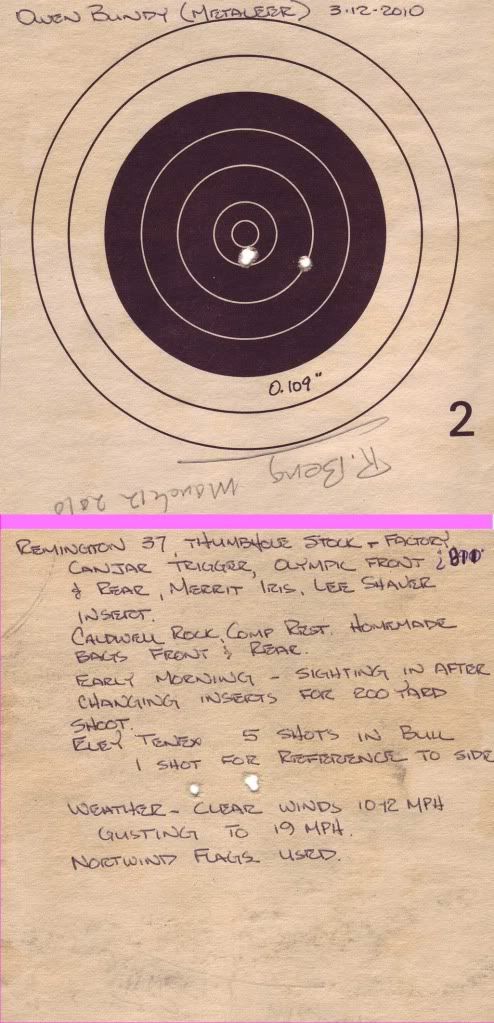 OWEN BUNDY (METALEER) 3-12-2010
0.109"
2
R. Berg
March 12 2010
REMINGTON 37, THUMBHOLE STOCK + FACTORY
CANJAR TRIGGER, OLYMPIC FRONT
& REAR, MERRIT IRIS, LEE SHAVER
INSERT.
CALDWELL ROCK, COMP REST. HOMEMADE
BAGS FRONT & REAR.
EARLY MORNING - SIGHTING IN AFTER
CHANGING INSERTS FOR 200 YARD
SHOOT.
ELEY TENEX 5 SHOTS IN BULL
1 SHOT FOR REFERENCE TO SIDE
WEATHER - CLEAR WINDS 10-12 MPH
GUSTING TO 19 MPH.
NORTWIND FLAGS USED.